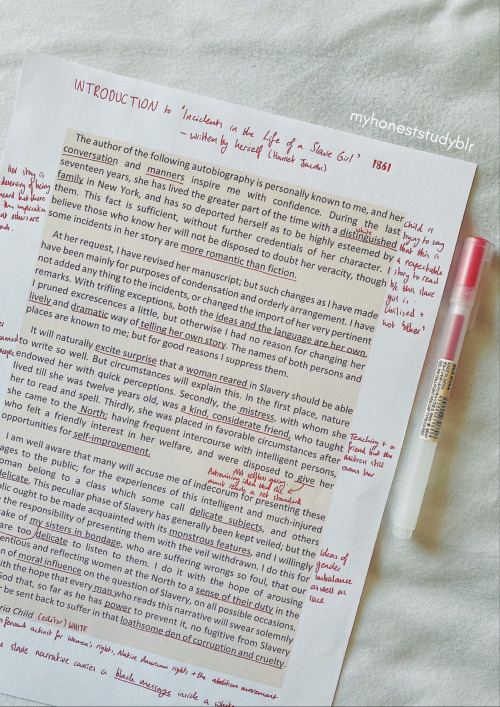 INTRODUCTION to "Incidents in the Life of a Slave Girl"
- written by herself (Harriet Jacobs) 1861
myhoneststudyblr
The author of the following autobiography is personally known to me, and her
conversation and manners inspire me with confidence. During the last
seventeen years, she has lived the greater part of the time with a distinguished
family in New York, and has so deported herself as to be highly esteemed by
them. This fact is sufficient, without further credentials of her character. I
believe those who know her will not be disposed to doubt her veracity, though
some incidents in her story are more romantic than fiction.
At her request, I have revised her manuscript; but such changes as I have made
have been mainly for purposes of condensation and orderly arrangement. I have
not added any thing to the incidents, or changed the import of her very pertinent
remarks. With trifling exceptions, both the ideas and the language are her own.
I pruned excrescences a little, but otherwise I had no reason for changing her
lively and dramatic way of telling her own story. The names of both persons and
places are known to me; but for good reasons I suppress them.
It will naturally excite surprise that a woman reared in Slavery should be able
to write so well. But circumstances will explain this. In the first place, nature
endowed her with quick perceptions. Secondly, the mistress, with whom she
lived till she was twelve years old, was a kind, considerate friend, who taught
her to read and spell. Thirdly, she was placed in favorable circumstances after
she came to the North; having frequent intercourse with intelligent persons,
who felt a friendly interest in her welfare, and were disposed to give her
opportunities for self-improvement.
I am well aware that many will accuse me of indecorum for presenting these
ages to the public; for the experiences of this intelligent and much-injured
oman belong to a class which some call delicate subjects, and others
delicate. This peculiar phase of Slavery has generally been kept veiled; but the
blic ought to be made acquainted with its monstrous features, and I willingly
e the responsibility of presenting them with the veil withdrawn. I do this for
sake of my sisters in bondage, who are suffering wrongs so foul, that our
are too delicate to listen to them. I do it with the hope of arousing
entious and reflecting women at the North to a sense of their duty in the
n of moral influence on the question of Slavery, on all possible occasions.
with the hope that every man who reads this narrative will swear solemnly
God that, so far as he has power to prevent it, no fugitive from Slavery
r be sent back to suffer in that loathsome den of corruption and cruelty.
ria Child (editor) WHITE
activist for women's rights, Native American rights + the abolition movement
slave narrative carries a black message inside a white
Her story is
deserving of being
heard but there
others are
white
Child is
trying to say
that this is
a respectable
story to read
b/c this slave
girl is
civilised +
not 'other'
Teaching + a
friend but the
mistress still
owns her
Not selfless giving
Patronising idea that
must reach a set standard
Ideas of
gender
imbalance
as well as
race